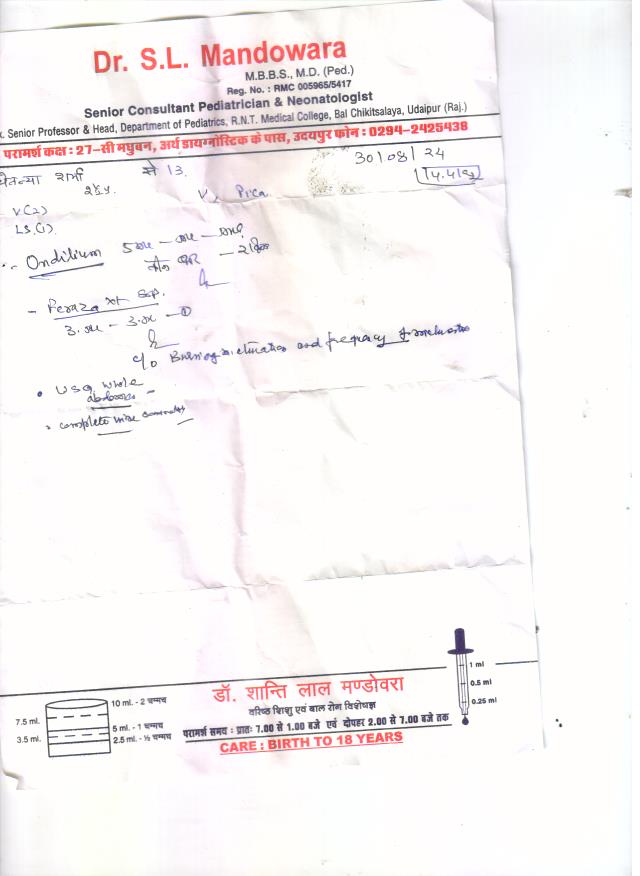 Dr. S.L. Mandowara
M.B.B.S., M.D. (Ped.)
Reg. No. : RMC 005965/5417
Senior Consultant Pediatrician & Neonatologist
x. Senior Professor & Head, Department of Pediatrics, R.N.T. Medical College, Bal Chikitsalaya, Udaipur (Raj.)
परामर्श कक्ष : 27-सी मधुबन, अर्थ डायग्नोस्टिक के पास, उदयपुर फोन : 0294-2425438
30/08/24
शर्मा 13.
Pica
V(2)
LS(1)
Ondilium 5 ml
- Peraza Syp.
c/o Burning micturation and freqency of
USG whole
abdomen
complete urine
10 ml. - 2 चम्मच
7.5 ml.
5 ml - 1 चम्मच
3.5 ml.
2.5 ml. - ½ चम्मच
डॉ. शान्ति लाल मण्डोवरा
वरिष्ठ शिशु एवं बाल रोग विशेषज्ञ
परामर्श समय : प्रातः 7.00 से 1.00 बजे एवं दोपहर 2.00 से 7.00 बजे तक
CARE : BIRTH TO 18 YEARS
1 ml
0.5 ml
0.25 ml